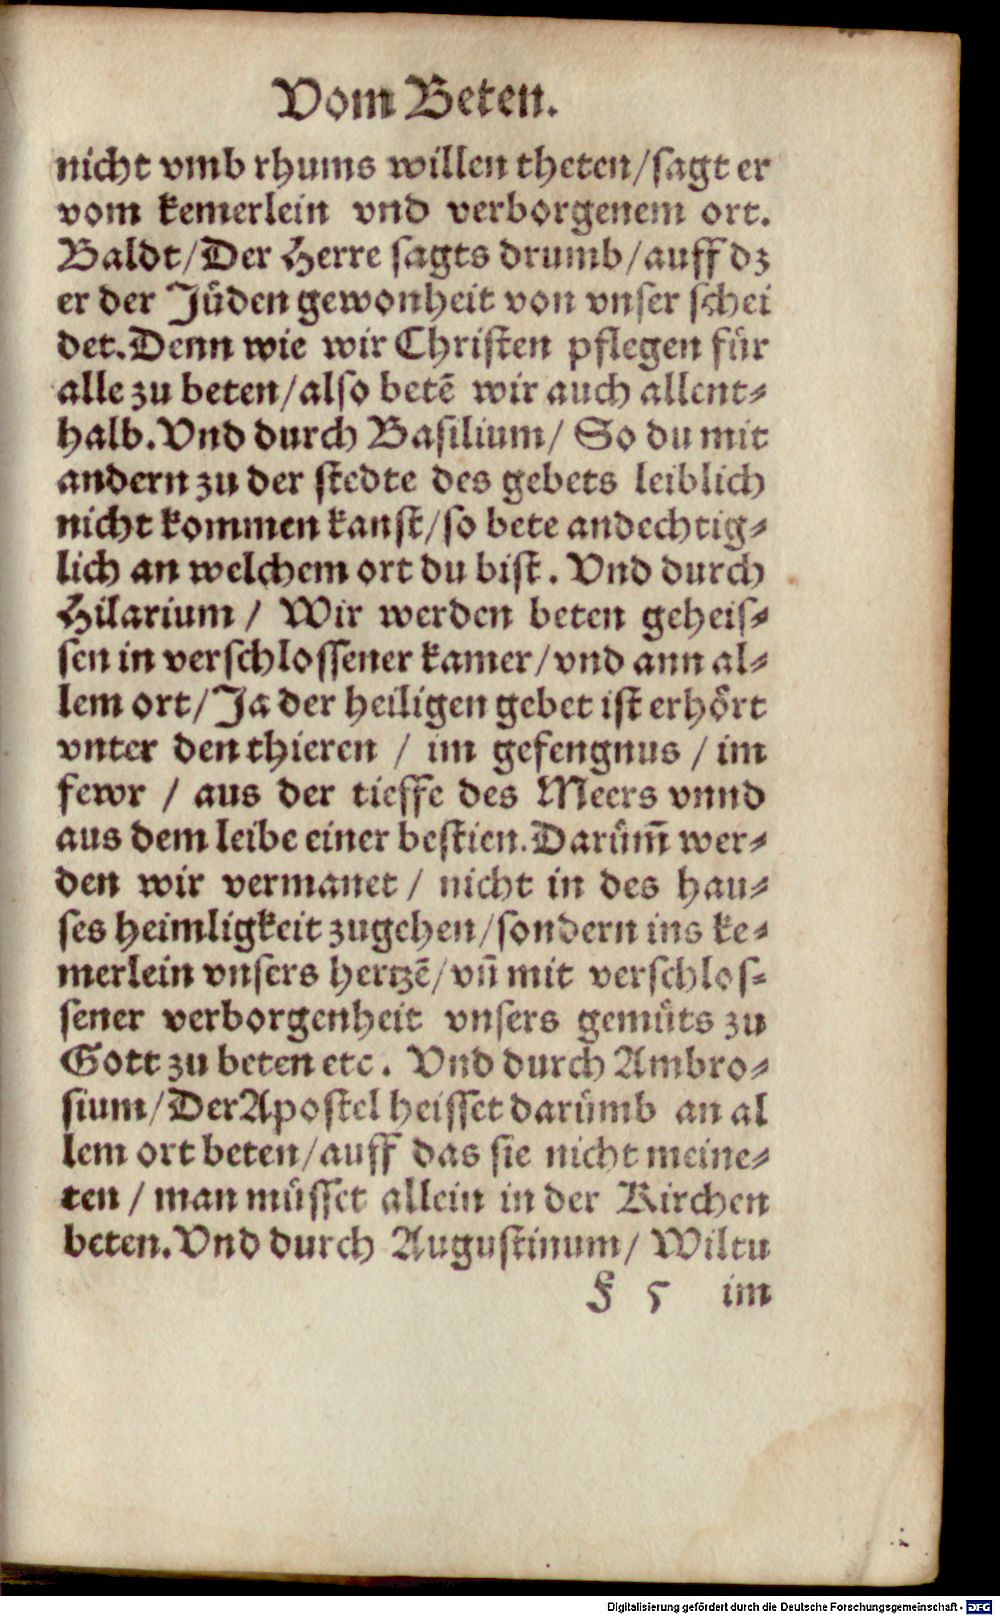 Vom Beten.
nicht vmb rhums willen theten/sagt er
vom kemerlein vnd verborgenem ort.
Baldt/Der Herre sagts drumb/auff dz
er der Jüden gewonheit von vnser schei
det.Denn wie wir Christen pflegen für
alle zu beten/also betē wir auch allent⸗
halb.Vnd durch Basilium/ So du mit
andern zu der stedte des gebets leiblich
nicht kommen kanst/so bete andechtig⸗
lich an welchem ort du bist. Vnd durch
Hilarium / Wir werden beten geheis⸗
sen in verschlossener kamer/vnd ann al⸗
lem ort/Ja der heiligen gebet ist erhört
vnter den thieren / im gefengnus / im
fewr / aus der tieffe des Meers vnnd
aus dem leibe einer bestien.Darüm̄ wer⸗
den wir vermanet / nicht in des hau⸗
ses heimligkeit zugehen/sondern ins ke⸗
merlein vnsers hertzē/vn̄ mit verschlos⸗
sener verborgenheit vnsers gemüts zu
Gott zu beten etc. Vnd durch Ambro⸗
sium/Der Apostel heisset darümb an al
lem ort beten/auff das sie nicht meine⸗
ten / man müsset allein in der Kirchen
beten.Vnd durch Augustinum/ Wiltu
F 5 im
Digitalisierung gefördert durch die Deutsche Forschungsgemeinschaft - DFG